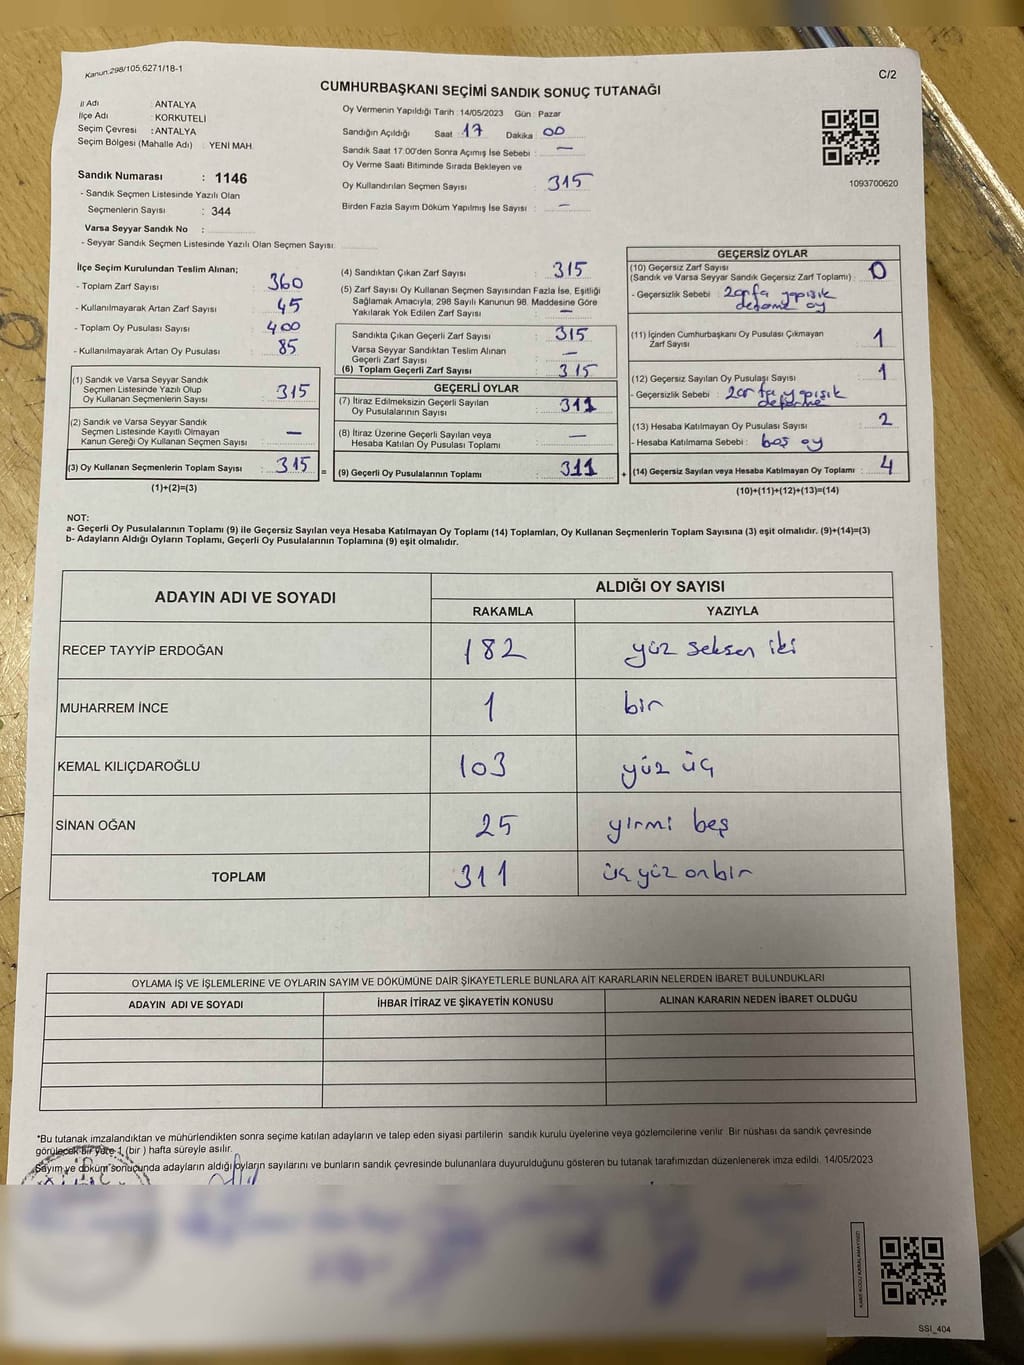 Kanun:298/105,6271/18-1
C/2
CUMHURBAŞKANI SEÇİMİ SANDIK SONUÇ TUTANAĞI
İl Adı : ANTALYA
İlçe Adı : KORKUTELİ
Seçim Çevresi : ANTALYA
Seçim Bölgesi (Mahalle Adı) : YENİ MAH.
Sandık Numarası : 1146
- Sandık Seçmen Listesinde Yazılı Olan
Seçmenlerin Sayısı : 344
Varsa Seyyar Sandık No :
- Seyyar Sandık Seçmen Listesinde Yazılı Olan Seçmen Sayısı:
Oy Vermenin Yapıldığı Tarih : 14/05/2023 Gün : Pazar
Sandığın Açıldığı Saat : 17 Dakika : 00
Sandık Saat 17:00'den Sonra Açımış İse Sebebi : —
Oy Verme Saati Bitiminde Sırada Bekleyen ve
Oy Kullandırılan Seçmen Sayısı : 315
Birden Fazla Sayım Döküm Yapılmış İse Sayısı : —
1093700620
İlçe Seçim Kurulundan Teslim Alınan;
- Toplam Zarf Sayısı : 360
- Kullanılmayarak Artan Zarf Sayısı : 45
- Toplam Oy Pusulası Sayısı : 400
- Kullanılmayarak Artan Oy Pusulası : 85
(1) Sandık ve Varsa Seyyar Sandık
Seçmen Listesinde Yazılı Olup
Oy Kullanan Seçmenlerin Sayısı : 315
(2) Sandık ve Varsa Seyyar Sandık
Seçmen Listesinde Kayıtlı Olmayan
Kanun Gereği Oy Kullanan Seçmen Sayısı : —
(3) Oy Kullanan Seçmenlerin Toplam Sayısı : 315 =
(1)+(2)=(3)
(4) Sandıktan Çıkan Zarf Sayısı : 315
(5) Zarf Sayısı Oy Kullanan Seçmen Sayısından Fazla İse, Eşitliği
Sağlamak Amacıyla; 298 Sayılı Kanunun 98. Maddesine Göre
Yakılarak Yok Edilen Zarf Sayısı : —
Sandıkta Çıkan Geçerli Zarf Sayısı : 315
Varsa Seyyar Sandıktan Teslim Alınan
Geçerli Zarf Sayısı : —
(6) Toplam Geçerli Zarf Sayısı : 315
GEÇERLİ OYLAR
(7) İtiraz Edilmeksizin Geçerli Sayılan
Oy Pusulalarının Sayısı : 311
(8) İtiraz Üzerine Geçerli Sayılan veya
Hesaba Katılan Oy Pusulası Toplamı : —
(9) Geçerli Oy Pusulalarının Toplamı : 311 +
GEÇERSİZ OYLAR
(10) Geçersiz Zarf Sayısı
(Sandık ve Varsa Seyyar Sandık Geçersiz Zarf Toplamı) : 0
- Geçersizlik Sebebi : zarfa yapışık
oy
(11) İçinden Cumhurbaşkanı Oy Pusulası Çıkmayan
Zarf Sayısı : 1
(12) Geçersiz Sayılan Oy Pusulası Sayısı : 1
- Geçersizlik Sebebi : zarfa yapışık
(13) Hesaba Katılmayan Oy Pusulası Sayısı : 2
- Hesaba Katılmama Sebebi : boş oy
(14) Geçersiz Sayılan veya Hesaba Katılmayan Oy Toplamı : 4
(10)+(11)+(12)+(13)=(14)
NOT:
a- Geçerli Oy Pusulalarının Toplamı (9) ile Geçersiz Sayılan veya Hesaba Katılmayan Oy Toplamı (14) Toplamları, Oy Kullanan Seçmenlerin Toplam Sayısına (3) eşit olmalıdır. (9)+(14)=(3)
b- Adayların Aldığı Oyların Toplamı, Geçerli Oy Pusulalarının Toplamına (9) eşit olmalıdır.
ADAYIN ADI VE SOYADI
ALDIĞI OY SAYISI
RAKAMLA YAZIYLA
RECEP TAYYİP ERDOĞAN 182 yüz seksen iki
MUHARREM İNCE 1 bir
KEMAL KILIÇDAROĞLU 103 yüz üç
SİNAN OĞAN 25 yirmi beş
TOPLAM 311 üç yüz on bir
OYLAMA İŞ VE İŞLEMLERİNE VE OYLARIN SAYIM VE DÖKÜMÜNE DAİR ŞİKAYETLERLE BUNLARA AİT KARARLARIN NELERDEN İBARET BULUNDUKLARI
ADAYIN ADI VE SOYADI İHBAR İTİRAZ VE ŞİKAYETİN KONUSU ALINAN KARARIN NEDEN İBARET OLDUĞU
*Bu tutanak imzalandıktan ve mühürlendikten sonra seçime katılan adayların ve talep eden siyasi partilerin sandık kurulu üyelerine veya gözlemcilerine verilir. Bir nüshası da sandık çevresinde
görülecek bir yere 1 (bir) hafta süreyle asılır.
Sayım ve döküm sonucunda adayların aldığı oyların sayılarını ve bunların sandık çevresinde bulunanlara duyurulduğunu gösteren bu tutanak tarafımızdan düzenlenerek imza edildi. 14/05/2023
KARE KODU KARALAMAYINIZ!
SSI_404